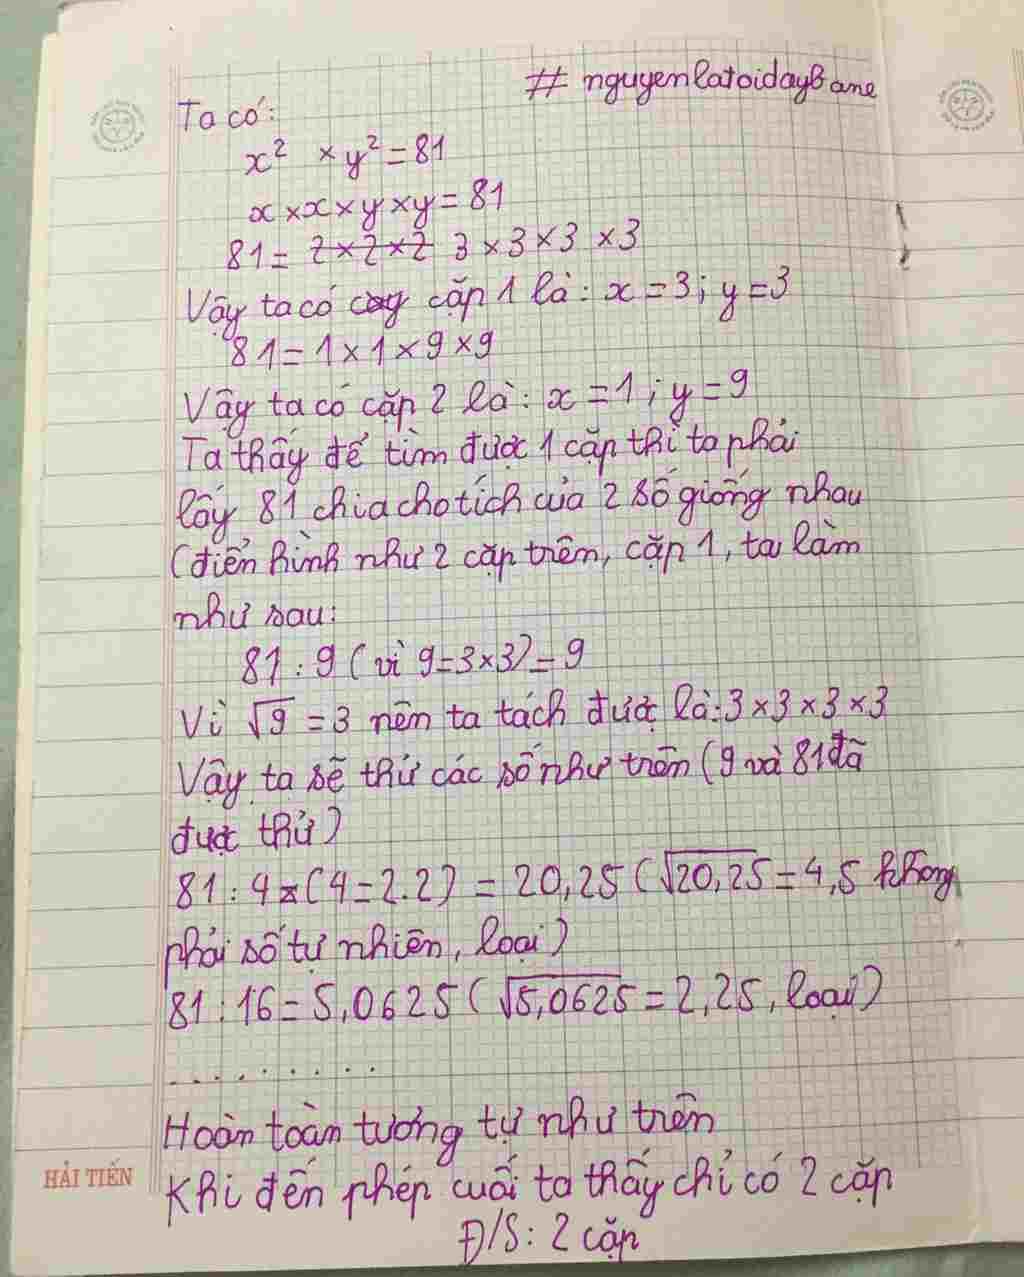 # nguyenlatoidayBane
Ta có:
x² × y² = 81
x × x × y × y = 81
81 = 2 × 2 × 2 3 × 3 × 3 × 3
Vậy ta có cặp 1 là: x = 3; y = 3
81 = 1 × 1 × 9 × 9
Vậy ta có cặp 2 là: x = 1; y = 9
Ta thấy để tìm được 1 cặp thì ta phải
lấy 81 chia cho tích của 2 số giống nhau
(điển hình như 2 cặp trên, cặp 1, ta làm
như sau:
81 : 9 ( vì 9 = 3 × 3) = 9
Vì √9 = 3 nên ta tách được là: 3 × 3 × 3 × 3
Vậy ta sẽ thử các số như trên (9 và 81 đã
được thử)
81 : 4 (4 = 2.2) = 20,25 (√20,25 = 4,5 không
phải số tự nhiên, loại)
81 : 16 = 5,0625 (√5,0625 = 2,25, loại)
. . . . . . . . . .
Hoàn toàn tương tự như trên
Khi đến phép cuối ta thấy chỉ có 2 cặp
Đ/S: 2 cặp
HẢI TIẾN